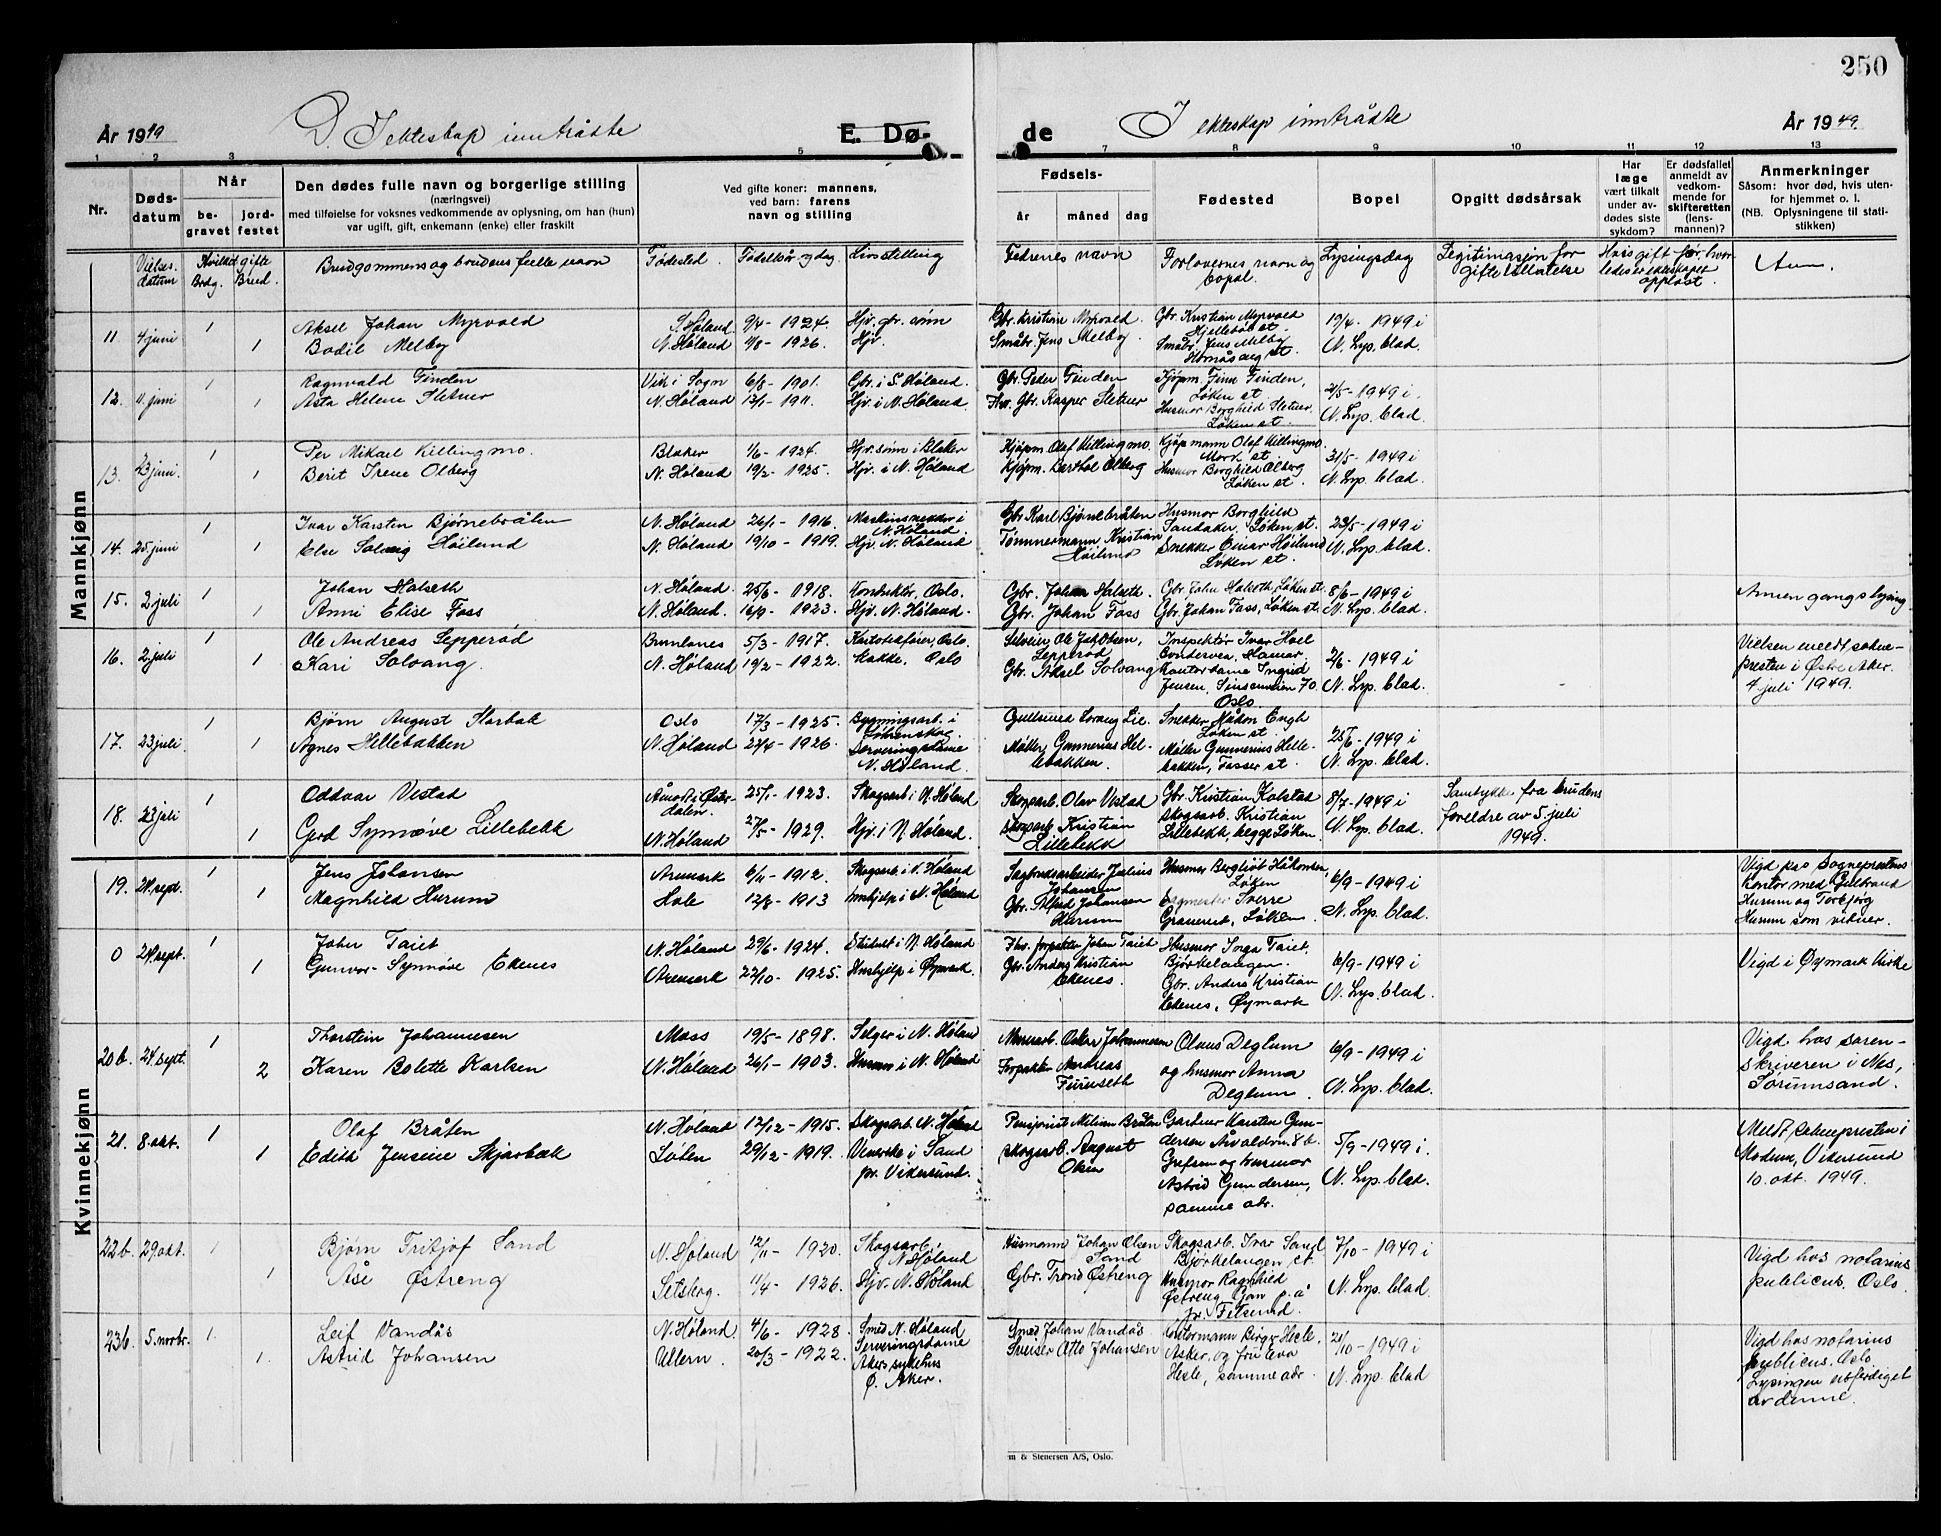 250
År 1949 D. I ekteskap inntrådte E. Dø-de I ekteskap inntrådte År 1949
1 2 3 5 7 8 9 10 11 12 13
Nr. Døds-datum Når be-gravet jord-festet
Den dødes fulle navn og borgerlige stilling
(næringsvei)
med tilføielse for voksnes vedkommende av oplysning, om han (hun)
var ugift, gift, enkemann (enke) eller fraskilt
Ved gifte koner: mannens,
ved barn: farens
navn og stilling
Fødsels-
år måned dag
Fødested
Bopel
Opgitt dødsårsak
Har
læge
vært tilkalt
under av-
dødes siste
sykdom?
Er dødsfallet
anmeldt av
vedkom-
mende for
skifteretten
(lens-
mannen)?
Anmerkninger
Såsom: hvor død, hvis uten-
for hjemmet o. l.
(NB. Oplysningene til stati-
stikken)
Vielses-datum Hvilket gifte Brdg. Brud.
Brudgommens og brudens fulle navn
Fødested. Fødselsår og dag Livsstilling
Fedrenes navn
Forlovernes navn og bopel.
Lysingsdag
Legitimasjon for giftetillatelse
Hvis gift før, hvorledes er ekteskapet oppløst
Anm.
Mannkjønn
11 4 juni 1 Aksel Johan Myrvold S. Høland 9/4 - 1924. Hjv. gbr. sønn Gbr. Kristian Myrvold. Gbr. Kristian Myrvold Hjellebøl st. 19/4 - 1949 i
1 Bodil Melby N. Høland 11/8 - 1926. Hjv. Småbr. Jens Melby. Småbr. Jens Melby st. N. Lys. blad.
12. 11. juni 1 Ragnvald Finden Vik i Sogn 6/8 - 1901. Gbr. i S. Høland. Gbr. Peder Finden Kjøpm. Finn Finden, Løken st. 2/5 - 1949 i
1 Asta Helene Sletner N. Høland 13/1 - 1911. Hjv. i N. Høland. Fhv. Gbr. Kasper Sletner Husmor Borghild Sletner, Løken st. N. Lys. blad.
13. 23 juni. 1 Per Mikael Killingmo. Blaker 1/6 - 1924. Hjv. sønn i Blaker Kjøpm. Olaf Killingmo Kjøpmann Olaf Killingmo. Mord st. 31/5 - 1949 i
1 Berit Irene Olberg N. Høland 19/2 - 1925. Hjv. i N. Høland Kjøpm. Berthol Olberg Husmor Borghild Olberg Løken st. N. Lys. blad.
14. 25 juni 1 Ivar Karsten Bjørnebråten N. Høland 26/1 - 1916. Maskinsnekker i N. Høland Gbr. Karl Bjørnebråten Husmor Borghild Sandaker, Løken st. 23/5 - 1949 i
1 Else Solveig Høilund N. Høland 19/10 - 1919. Hjv. N. Høland Tømmermann Kristian Høilund Snekker Einar Høilund Løken st. N. Lys. blad.
15. 2 juli 1 Johan Halseth N. Høland 25/6 - 1918. Konduktør, Oslo. Gbr. Johan Halseth. Gbr. John Halseth, Løken st. 8/6 - 1949 i Annen gangs lysing
1 Anni Elise Foss N. Høland. 16/9 - 1923. Hjv. N. Høland. Gbr. Johan Foss Gbr. Johan Foss, Løken st. N. Lys. blad.
16. 2 juli 1 Ole Andreas Lepperød Brunlanes 5/3 - 1917. Kartotekfører, Oslo. Ole Jakobsen, Lepperød Inspektør Ivar Hoel Hamar 2/6 - 1949 i Vielsen meldt sokne-presten i Østre Aker. 4 juli 1949.
1 Kari Solvang N. Høland 19/2 - 1922. Oslo Gbr. Aksel Solvang Kontordame Ingrid Jensen, Sinsenveien 70. Oslo N. Lys. blad.
17. 23 juli 1 Bjørn August Oslo 17/3 - 1925. Bygningsarb. i Lørenskog. Gullsmed Snekker Håkon Engh Løken st 25/6 - 1949 i
1 Agnes Hellebakken N. Høland 27/4 - 1926. Serveringsdame N. Høland. Møller Gunnerius Hel-lebakken. Møller Gunnerius Helle-bakken, Fosser st. N. Lys. blad.
18. 23 juli 1 Oddvar Vestad Åmot i Øster-dalen. 25/1 - 1923. Skogsarb. i N. Høland Skogsarb. Olav Vestad Gbr. Kristian Kolstad 8/7 - 1949 i Samtykke fra brudens foreldre av 5. juli 1949.
1 Gerd Synnøve Lillebekk N. Høland 27/5 - 1929. Hjv. i N. Høland. Skogsarb. Kristian Lillebekk skogsarb. Kristian Lillebekk, begge Løken. N. Lys. blad.
19. 24. sept. 1 Jens Johansen Aremark 6/11 - 1912. Skogsarb. i N. Høland Sagbruksarbeider Julius Johansen Husmor Bergliot Håkonsen, Løken 6/9 - 1949 i Vigd paa Sogneprestens kontor med Gulbrand Hurum og Torbjørg Hurum som vitner.
1 Magnhild Hurum Hole 12/8 - 1913 Innhjelp i N. Høland Gbr. Alfred Johansen Hurum Sverre Løken N. Lys. blad.
0 24. sept. 1 John Taiet N. Høland 29/6 - 1924. i N. Høland Fhv. forpakter Johan Taiet Husmor Inga Taiet. Bjørkelangen. 6/9 - 1949 i Vigd i Øymark kirke
1 Gunvor Synnøve Ekenes Aremark 22/10 - 1925. Hushjelp i Øymark. Gbr. Anders Kristian Ekenes. Gbr. Anders Kristian Ekenes, Øymark N. Lys. blad.
Kvinnekjønn
20 b. 24. sept. 1 Thorstein Johannesen Moss 19/5 - 1898. Selger i N. Høland Murarb. Oskar Johannesen Claus Deglum 6/9 - 1949 i Vigd hos soren-skriveren i Nes, Sørumsand.
2 Karen Bolette Karlsen N. Høland 26/1 - 1903. Husmor i N. Høland Forpakter Andreas Furuseth og husmor Anna Deglum. N. Lys. blad.
21. 8. okt. 1 Olaf Bråten N. Høland 17/12 - 1915. Skogsarb. N. Høland Pensjonist Bråten Gartner Karsten Gun-dersen Åsvaldvn. 8 b. 5/9 - 1949 i. Meldt soknepresten i Modum, Vikersund 10. okt. 1949.
1 Edith Jensine Skjærbæk Løten 29/12 - 1919. i Sand pr. Vikersund. skogsarb. August Olsen Grefsen og husmor Astrid Gundersen, samme adr. N. Lys. blad.
22 b. 29 okt. 1 Bjørn Fritjof Sand N. Høland 12/11 - 1920. Skogsarb. N. Høland Husmann Johan Olsen Sand Skogsarb. Ivar Sand Bjørkelangen st. 7/10 - 1949 i Vigd hos notarius publicus. Oslo.
1 Åse Østreng Setskog. 11/4 - 1926. Hjv. N. Høland Gbr. Trond Østreng Husmor Ragnhild Østreng p. å. pr. Fetsund. N. Lys. blad.
23 b 5. novbr. 1. Leif Vandås N. Høland. 4/6 - 1928. Smed N. Høland Smed Johan Vandås Birger Hesle, 21/10 - 1949 i Vigd hos notarius publicus. Oslo Lysingen utferdiget av denne.
1. Astrid Johansen Ullern. 20/3 - 1922. Serveringsdame Akers sykehus Ø. Aker. Sveiser Otto Johansen Asker, og fru Eva Hesle, samme adr. N. Lys. blad
m & Stenersen A/S, Oslo.